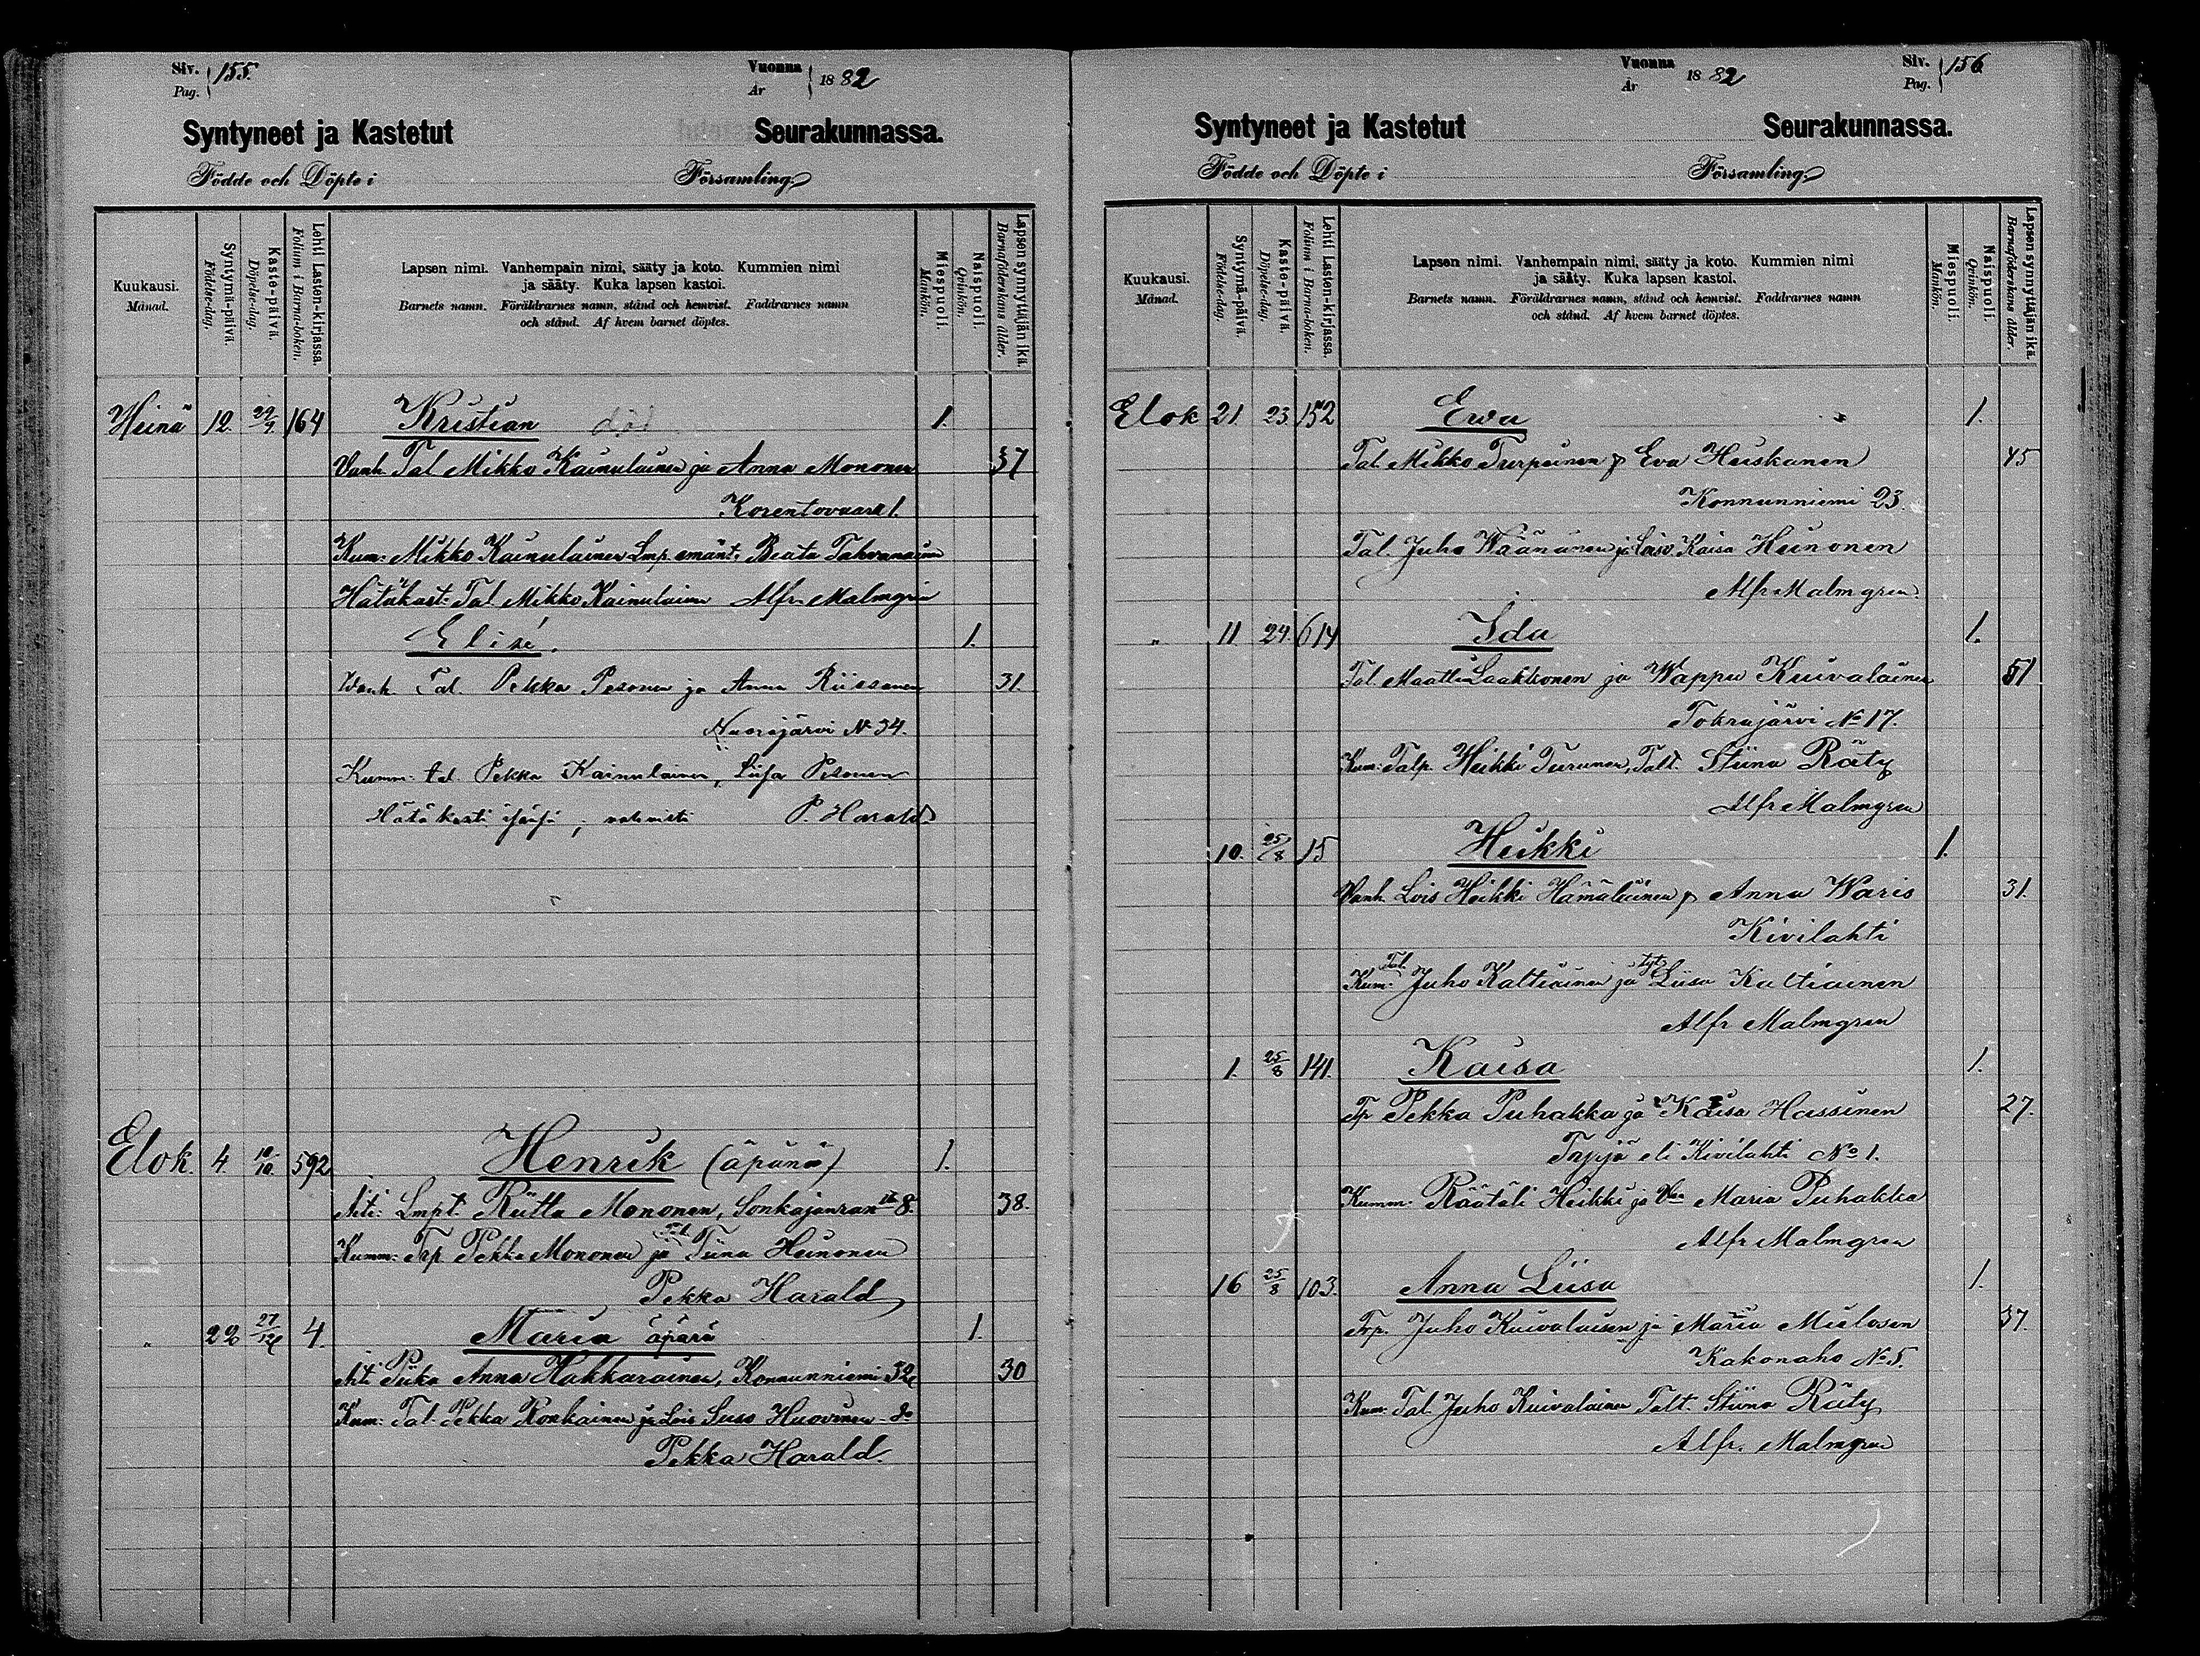 Siv. Pag. 155.
Vuonna År 1882
Syntyneet ja Kastetut Seurakunnassa.
Födde och Döpte i Församling.
Kuukausi. Månad.
Syntymä-päivä. Födelse-dag.
Kaste-päivä. Döpelse-dag.
Lehti Lasten-kirjassa. Folium i Barna-boken.
Lapsen nimi. Vanhempain nimi, sääty ja koto. Kummien nimi
ja sääty. Kuka lapsen kastoi.
Barnets namn. Föräldrarnes namn, stånd och hemvist. Faddrarnes namn
och stånd. Af hvem barnet döptes.
Miespuoli. Mankön.
Naispuoli. Qvinkön.
Lapsen synnyttäjän ikä. Barnaföderskans ålder.
Heinä 12. 164 Kristian död 1.
Vanh. Tal Mikko Kainulainen ja Anna Mononen 37
Korentovaara 1.
Kum: Mikko Kainulainen Lmp. emänt: Beata Tahvanainen
Hätäkast: Tal Mikko Kainulainen Alfr. Malmgren
Elise. 1.
Vanh. Tal. Pekka Pesonen ja Anna Riissanen 31.
Nuorajärvi N 34.
Kumm: tal Pekka Kainulainen, Liisa Pesonen
Hätäkasti P. Harald
Elok. 4. 10/10. 592 Henrik (äpärä) 1.
Äiti: Lmpt. Riitta Mononen, Sonkajanran 8. 38.
Kumm: Trp Pekka Mononen ja Tal. Tiina Heinonen
Pekka Harald
" 22 27/12 4. Maria äpärä 1.
Äiti Piika Anna Hakkarainen, Konnunniemi 32 30
Kum: Tal. Pekka Ronkainen ja Lois Huovinen
Pekka Harald.
Siv. Pag. 156
Vuonna År 1882
Syntyneet ja Kastetut Seurakunnassa.
Födde och Döpte i Församling.
Kuukausi. Månad.
Syntymä-päivä. Födelse-dag.
Kaste-päivä. Döpelse-dag.
Lehti Lasten-kirjassa. Folium i Barna-boken.
Lapsen nimi. Vanhempain nimi, sääty ja koto. Kummien nimi
ja sääty. Kuka lapsen kastoi.
Barnets namn. Föräldrarnes namn, stånd och hemvist. Faddrarnes namn
och stånd. Af hvem barnet döptes.
Miespuoli. Mankön.
Naispuoli. Qvinkön.
Lapsen synnyttäjän ikä. Barnaföderskans ålder.
Elok 21. 23. 152 Ewa 1.
Tal. Mikko Turpeinen Eva Heiskanen 45
Konnunniemi 23.
Tal. Juho Wäänänen ja Kaisa Heinonen
Alfr Malmgren.
" 11 24. 614 Ida 1.
Tal. Laakkonen ja Wappu Kuivalainen 51
Tokrajärvi No 17.
Kum: Talp. Heikki Turunen, Talt. Stiina Räty
Alfr Malmgren
10. 25/8 15 Heikki 1.
Vanh. Lois Heikki Hämäläinen Anna Waris 31.
Kivilahti
Kum: Tal. Juho Kaltiainen ja tyt. Liisa Kaltiainen
Alfr Malmgren
1. 25/8 141. Kaisa 1.
Tp Pekka Puhakka ja Kaisa Hassinen 27.
eli Kivilahti No 1.
Kumm: Räätäli Heikki ja Maria Puhakka
Alfr Malmgren
16 25/8 103. Anna Liisa 1.
Trp. Juho Kuivalainen ja Maria Mielosen 37.
Kakonaho No 5.
Kum: Tal. Juho Kuivalainen Talt. Stiina Räty
Alfr. Malmgren